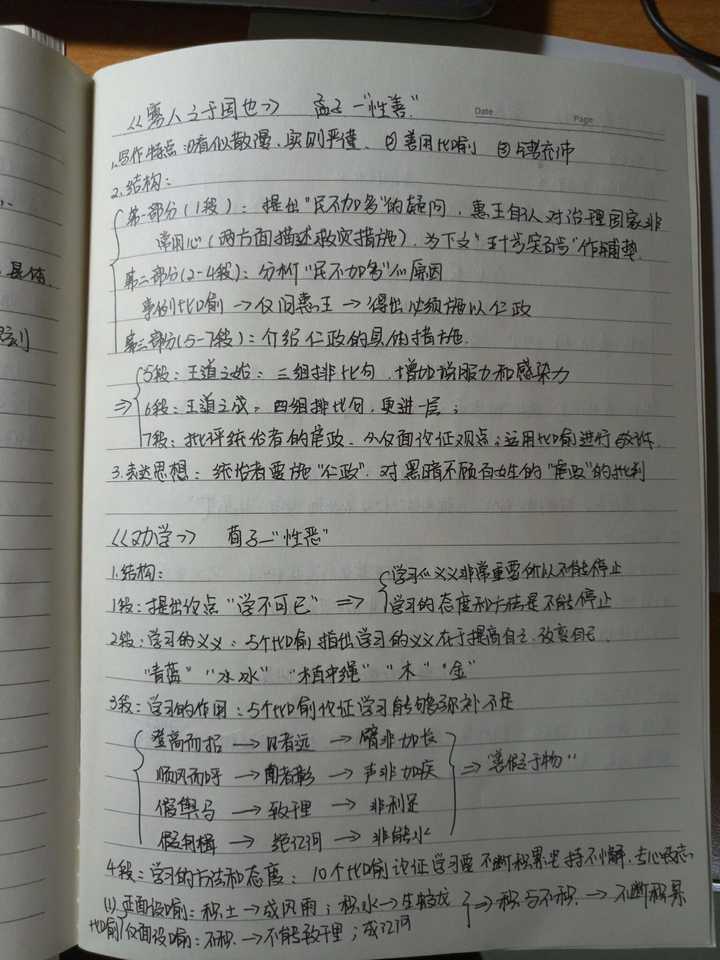 《寡人之于国也》 孟子—"性善"
Date Page
1.写作特点:①看似散漫、实则严谨、②善用比喻 ③
2.结构:
第一部分(1段):提出"民不加多"的疑问,惠王自认对治理国家非
常用心(两方面描述救灾措施),为下文"五十步笑百步"作铺垫.
第二部分(2-4段):分析"民不加多"的原因
举例比喻→仅问惠王→得出必须施以仁政
第三部分(5-7段):介绍仁政的具体措施.
5段:王道之始:三组排比句,增加说服力和感染力
⇒ 6段:王道之成,四组排比句,更进一层;
7段:批评统治者的虐政、从反面论证观点;运用比喻进行
3.表达思想:统治者要施"仁政".对黑暗不顾百姓的"虐政"的批判
《劝学》 荀子—"性恶"
1.结构:
1段:提出论点"学不可已" ⇒ 学习的义义非常重要所以不能停止
学习的态度和方法是不能停止
2段:学习的义义:5个比喻指出学习的义义在于提高自己、改变自己.
"青蓝" "冰水" "木直中绳" "木" "金"
3段:学习的作用:5个比喻论证学习能够弥补不足
登高而招→见者远→臂非加长
顺风而呼→闻者彰→声非加疾 ⇒"善假于物"
假舆马→致千里→非利足
假舟楫→绝江河→非能水
4段:学习的方法和态度:10个比喻论证学习要不断积累坚持不懈、专心致志.
(1).正面设喻:积土→成风雨;积水→生蛟龙 ⇒积与不积.→不断积累
比喻 反面设喻:不积→不能致千里;成江河